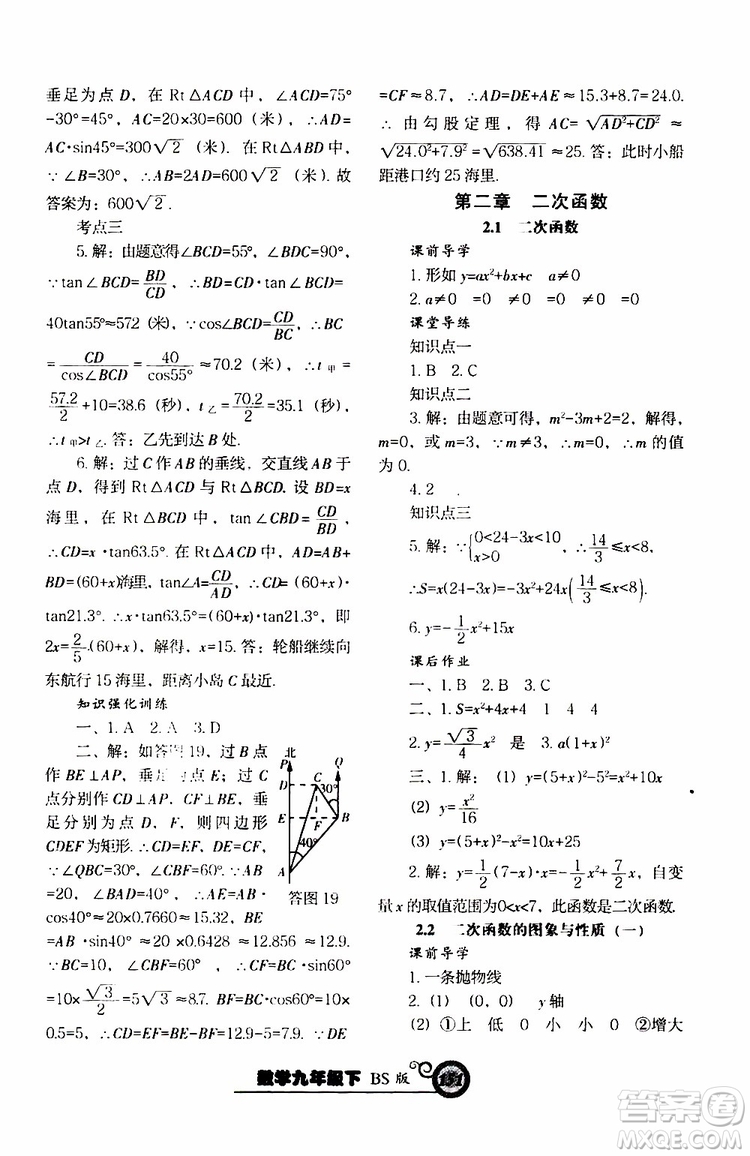 垂足为点 D, 在 Rt△ACD 中, ∠ACD=75°
-30°=45°, AC=20×30=600 (米), ∴AD=
AC·sin45°=300√2 (米). 在 Rt△ABD 中,
∵∠B=30°, ∴AB=2AD=600√2 (米). 故
答案为: 600√2.
考点三
5. 解: 由题意得∠BCD=55°, ∠BDC=90°.
∵tan∠BCD=BD/CD, ∴BD=CD·tan∠BCD=
40tan55°≈572 (米). ∵cos∠BCD=CD/BC, ∴BC
=CD/cos∠BCD=40/cos55°≈70.2 (米). ∴t甲=
57.2/2+10=38.6 (秒), t乙=70.2/2=35.1 (秒),
∴t甲>t乙. 答: 乙先到达 B 处.
6. 解: 过 C 作 AB 的垂线, 交直线 AB 于
点 D, 得到 Rt△ACD 与 Rt△BCD. 设 BD=x
海里, 在 Rt△BCD 中, tan∠CBD=CD/BD,
∴CD=x·tan63.5°. ∴在 Rt△ACD 中, AD=AB+
BD=(60+x)海里, tan∠A=CD/AD, ∴CD=(60+x)·
tan21.3°. ∴x·tan63.5°=(60+x)·tan21.3°, 即
2x=2/5(60+x), 解得, x=15. 答: 轮船继续向
东航行 15 海里, 距离小岛 C 最近.
知识强化训练
一、1. A 2. A 3. D
二、解: 如答图 19, 过 B 点
作 BE⊥AP, 垂足为点 E; 过 C
点分别作 CD⊥AP, CF⊥BE, 垂
足分别为点 D, F, 则四边形
CDEF 为矩形. ∴CD=EF, DE=CF.
∵∠QBC=30°, ∴∠CBF=60°. ∵AB
=20, ∠BAD=40°, ∴AE=AB·
cos40°≈20×0.7660≈15.3, BE
=AB·sin40°≈20×0.6428≈12.856≈12.9.
∵BC=10, ∠CBF=60°, ∴CF=BC·sin60°
=10×√3/2=5√3≈8.7. BF=BC·cos60°=10×
0.5=5, ∴CD=EF=BE-BF≈12.9-5=7.9. ∵DE
北
P
Q
D
C
30°
E
F
B
40°
A
答图 19
=CF≈8.7, ∴AD=DE+AE≈15.3+8.7=24.0.
∴由勾股定理, 得 AC=√(AD²+CD²)≈
√(24.0²+7.9²)=√638.41≈25. 答: 此时小船
距港口约 25 海里.
第二章 二次函数
2.1 二次函数
课前导学
1. 形如 y=ax²+bx+c a≠0
2. a≠0 =0 ≠0 ≠0 =0
课堂导练
知识点一
1. B 2. C
知识点二
3. 解: 由题意可得, m²-3m+2=2, 解得,
m=0, 或 m=3, ∵m-3≠0, ∴m=0, ∴m 的值
为 0.
4. 2
知识点三
5. 解: ∵{0<24-3x<10 x>0, ∴14/3≤x<8,
∴S=x(24-3x)=-3x²+24x(14/3≤x<8).
6. y=-1/2x²+15x
课后作业
一、1. B 2. B 3. C
二、1. S=x²+4x+4 1 4 4
2. y=√3/4x² 是 3. a(1+x)²
三、1. 解: (1) y=(5+x)²-5²=x²+10x
(2) y=x²/16
(3) y=(5+x)²=x²+10x+25
2. 解: y=1/2(7-x)·x=-1/2x²+7/2x, 自变
量 x 的取值范围为0<x<7, 此函数是二次函数.
2.2 二次函数的图象与性质（一）
课前导学
1. 一条抛物线
2. (1) (0, 0) y 轴
(2) ①上 低 0 小 0 ②增大
数学九年级下 BS 版 151
答案圈
MXQE.COM